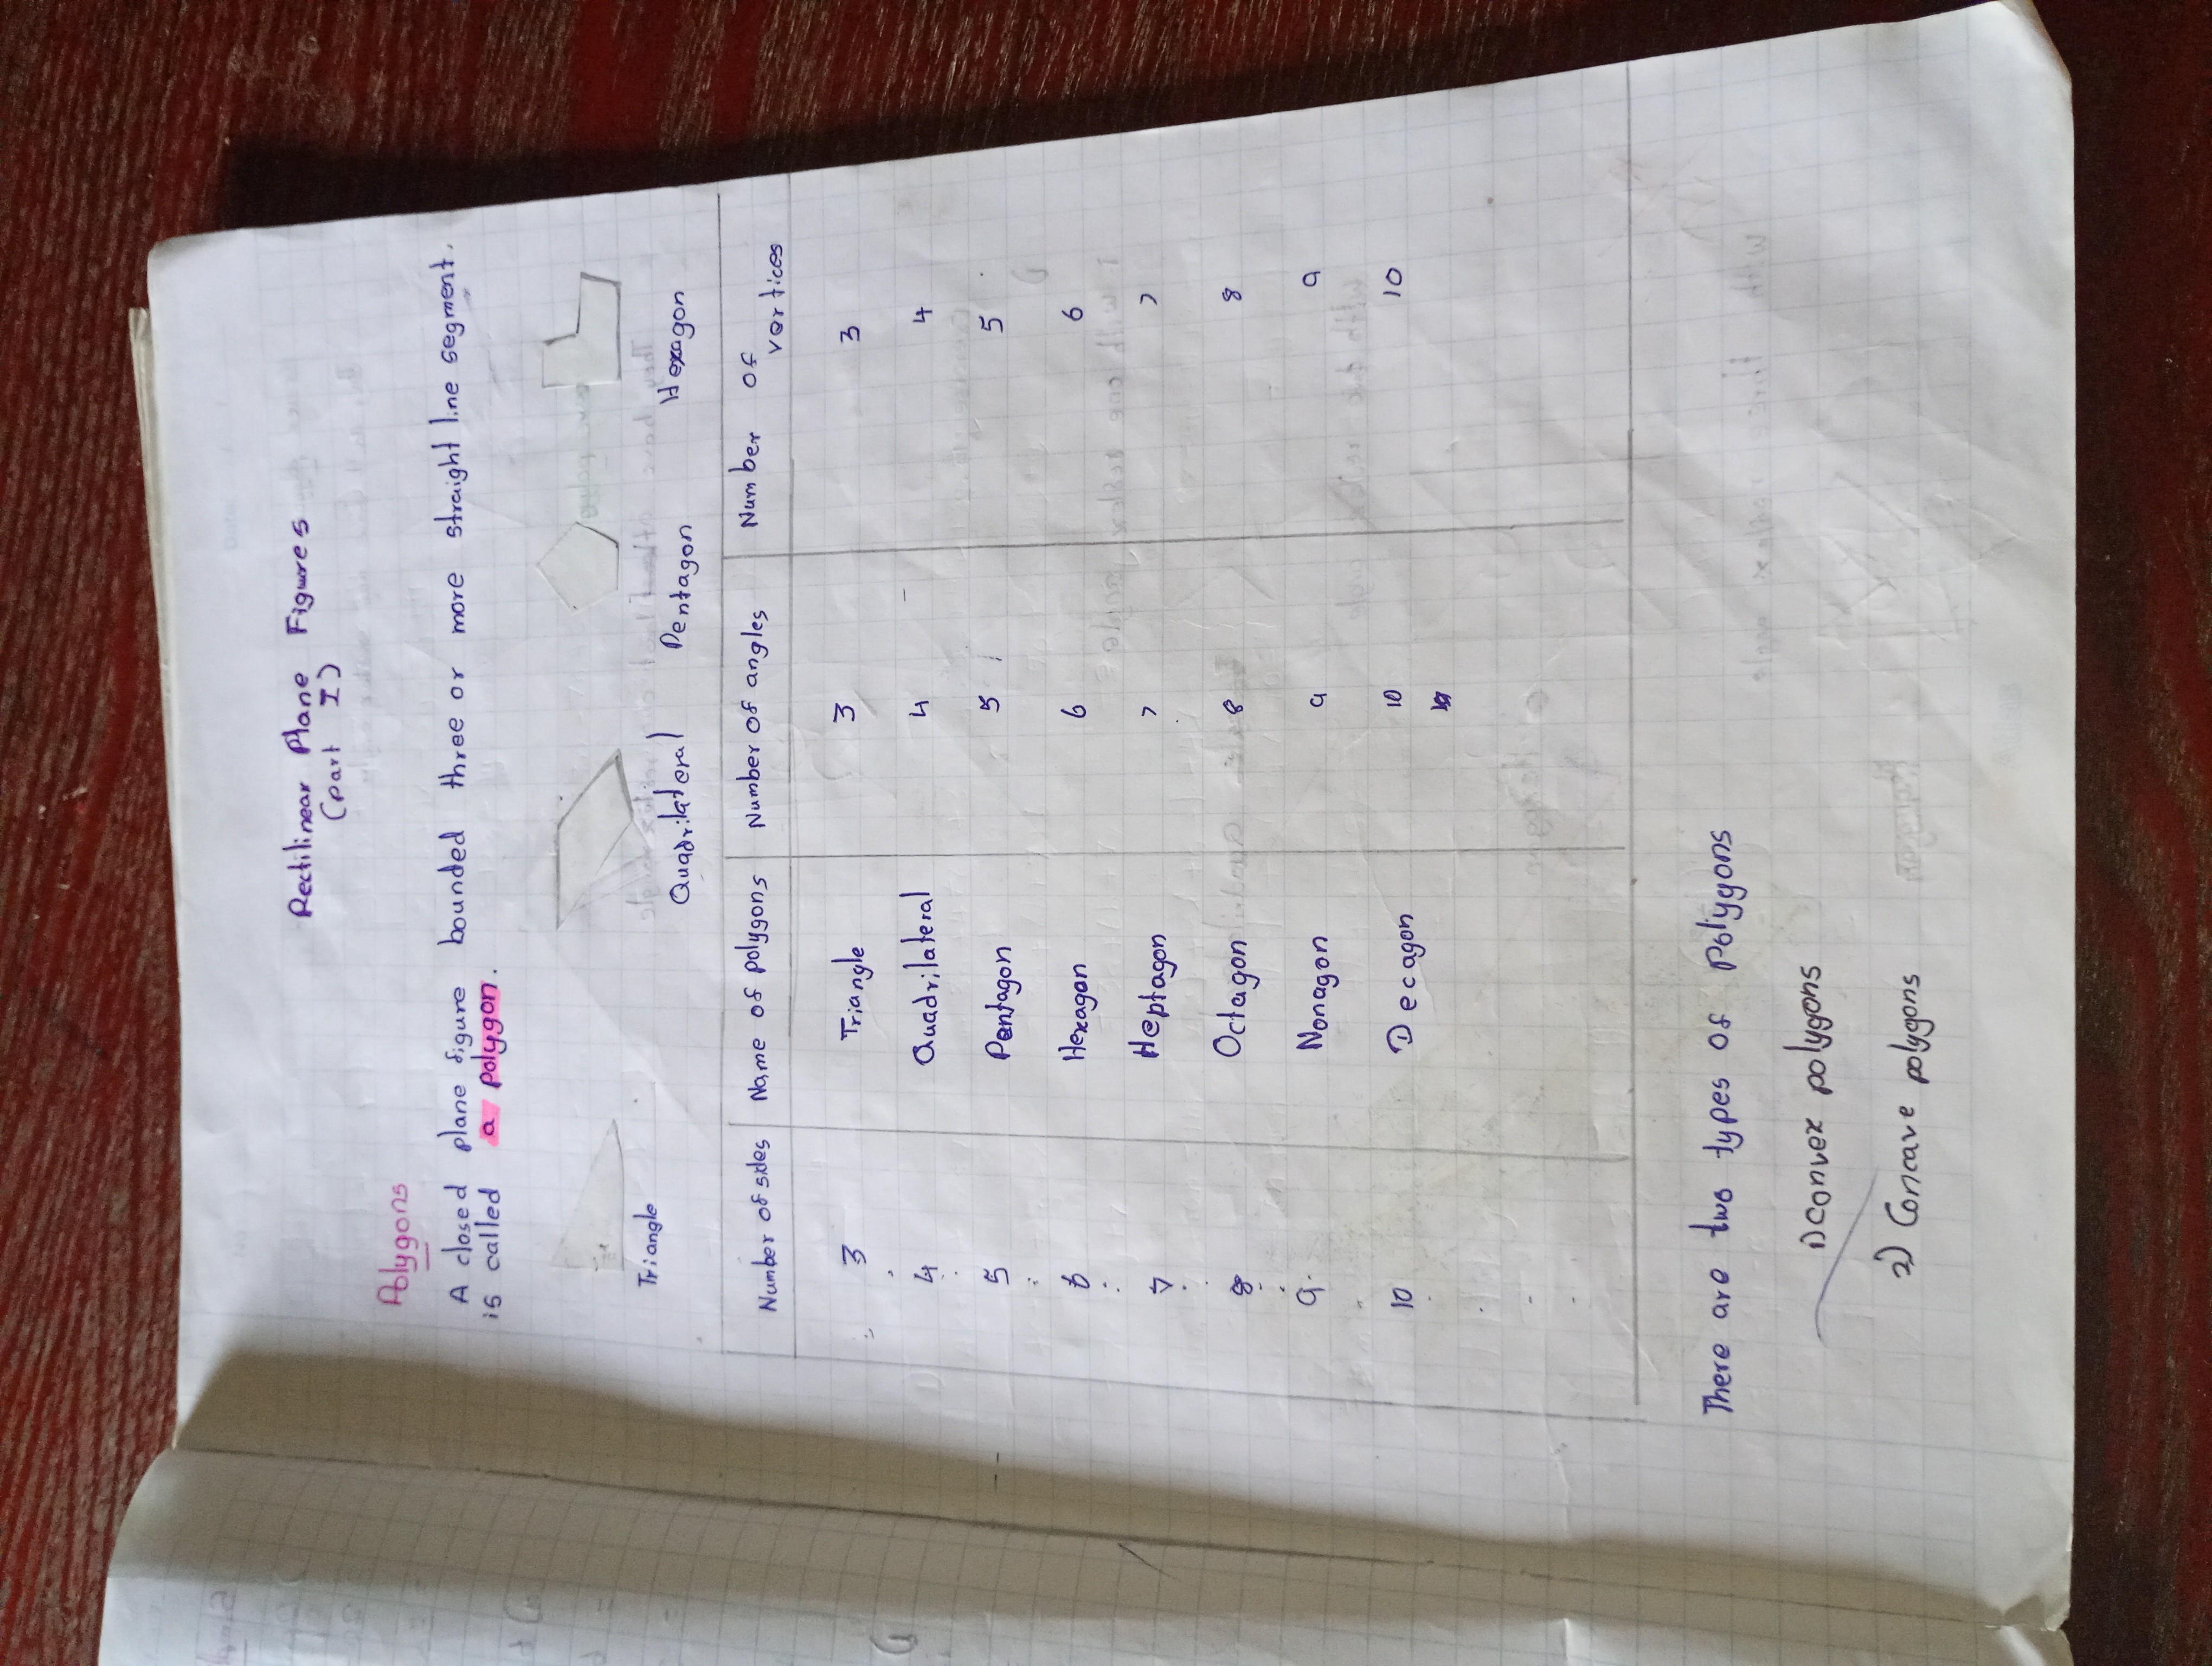 Rectilinear Plane Figures
(part I)
Polygons
A closed plane figure bounded three or more straight line segment.
is called a polygon.
Triangle Quadrilateral Pentagon Hexagon
Number of sides Name of polygons Number of angles Number of vertices
3 Triangle 3 3
4 Quadrilateral 4 4
5 Pentagon 5 5
6 Hexagon 6 6
7 Heptagon 7 7
8 Octagon 8 8
9 Nonagon 9 9
10 Decagon 10 10
There are two types of polygons
1) convex polygons
2) Concave polygons